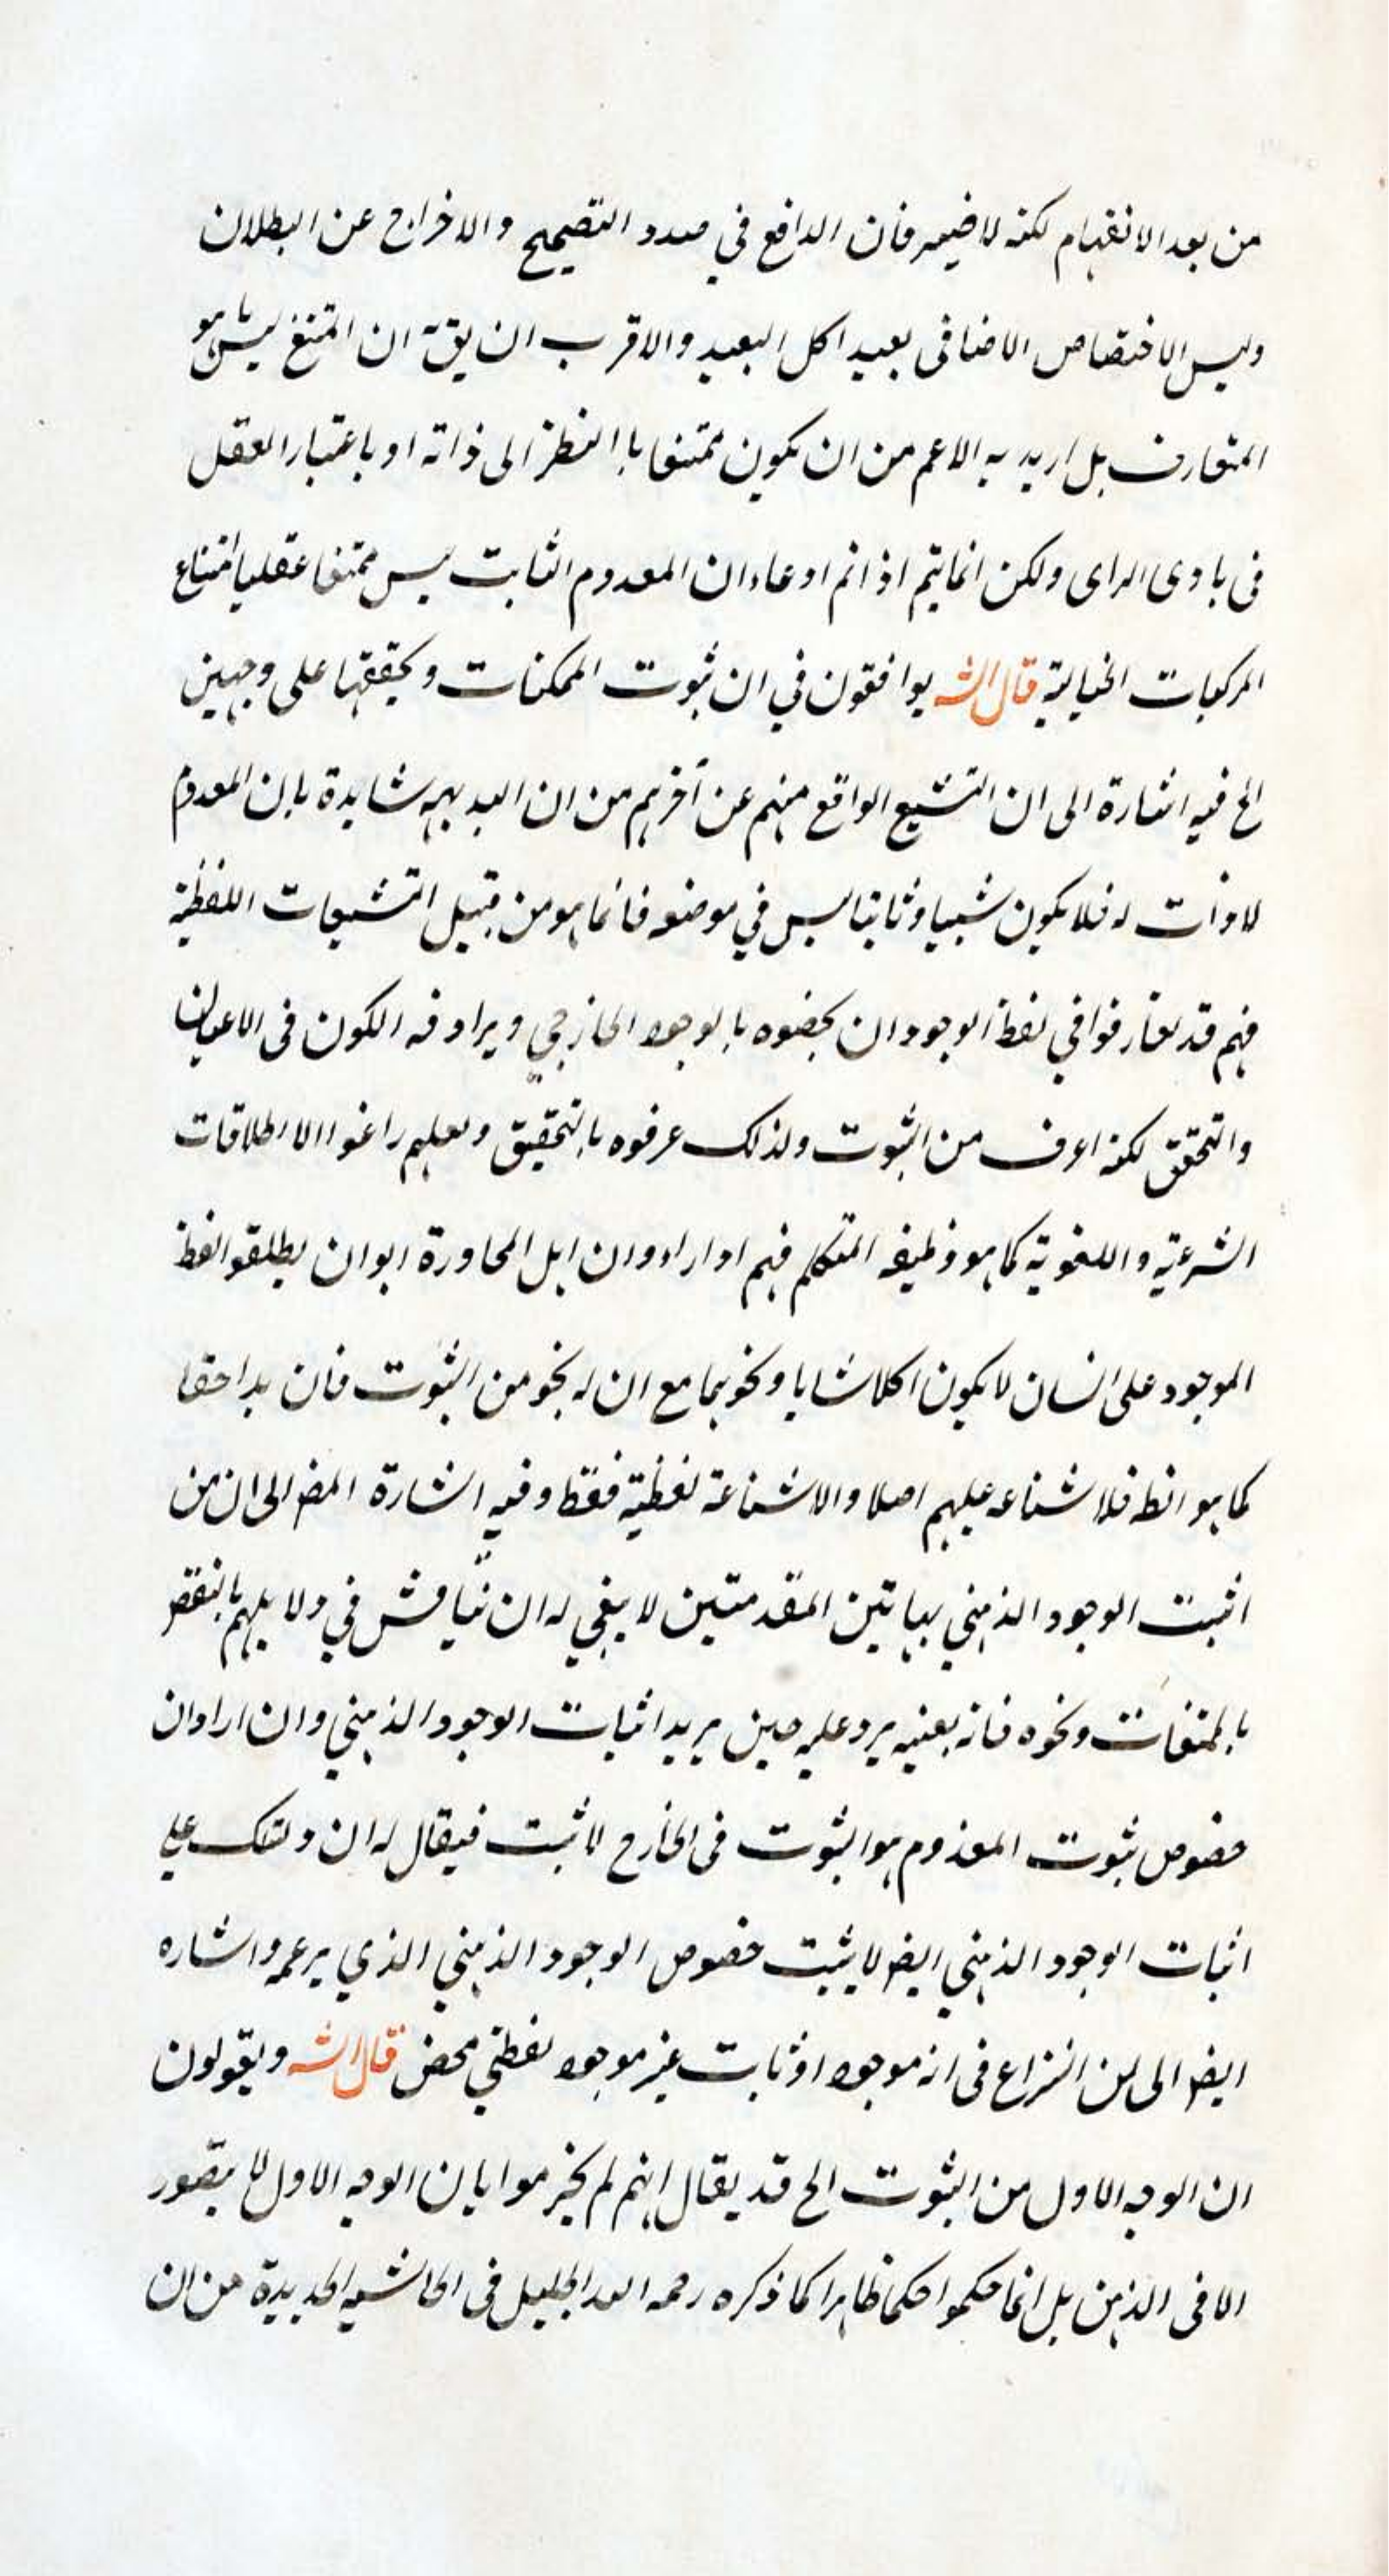 من بعد الانفهام لكنه لا ضير فان الدافع في صدد التصحيح والاخراج عن البطلان
وليس الاختصاص الاضافى بعيدا كل البعيد والاقرب ان يقّ ان الممتنع ليس ما هو
المتعارف بل اريد به الاعم من ان يكون ممتنعا با النظر الى ذاته او باعتبار العقل
فى بادى الراى ولكن انما يتم اذا تم ادعاء ان المعدوم الثابت ليس ممتنعا عقليا امتناع
المركبات الخيالية قال الش يوافقون في ان ثبوت الممكنات وتحققها على وجهين
الخ فيه اشارة الى ان التشنيع الواقع منهم عن آخرهم من ان البديهه شاهدة بان المعدوم
لا ذات له فلا يكون شيئا وثابتا ليس في موضعه فانما هو من قبيل التشنيعات اللفظية
فهم قد تعارفوا في لفظ الوجود ان يخصوه بالوجود الخارجي ويرادفه الكون فى الاعيان
والتحقق لكنه اعرف من الثبوت ولذلك عرفوه بالتحقيق ولعلهم راعوا الاطلاقات
الشرعية واللغوية كما هو وظيفه المتكلم فهم اذا راوا ان اهل المحاورة ابوا ان يطلقوا لفظ
الموجود على انسان لا يكون اكلا شابا ونحوهما مع ان له نحو من الثبوت فان هذا حقا
كما هو الظ فلا شناعه عليهم اصلا والا شناعة لفظية فقط وفيه اشارة ايض الى ان من
اثبت الوجود الذهني بهاتين المقدمتين لا ينبغي له ان يناقش في دلايلهم بالنقض
بالممتنعات ونحوه فانه بعينه يرد عليه حين يريد اثبات الوجود الذهني وان اراد ان
خصوص ثبوت المعدوم هو الثبوت فى الخارج لا ثبت فيقال له ان دلتك على
اثبات الوجود الذهني ايض لا يثبت خصوص الوجود الذهني الذي يزعمه واشاره
ايض الى ان النزاع فى انه موجود او ثابت غير موجود لفظي محض قال الش ويقولون
ان الوجه الاول من الثبوت الخ قد يقال انهم لم يجزموا بان الوجه الاول لا يتصور
الا فى الذهن بل انما حكموا حكما ظاهرا كما ذكره رحمه الله الجليل فى الحاشيه الجديدة من ان